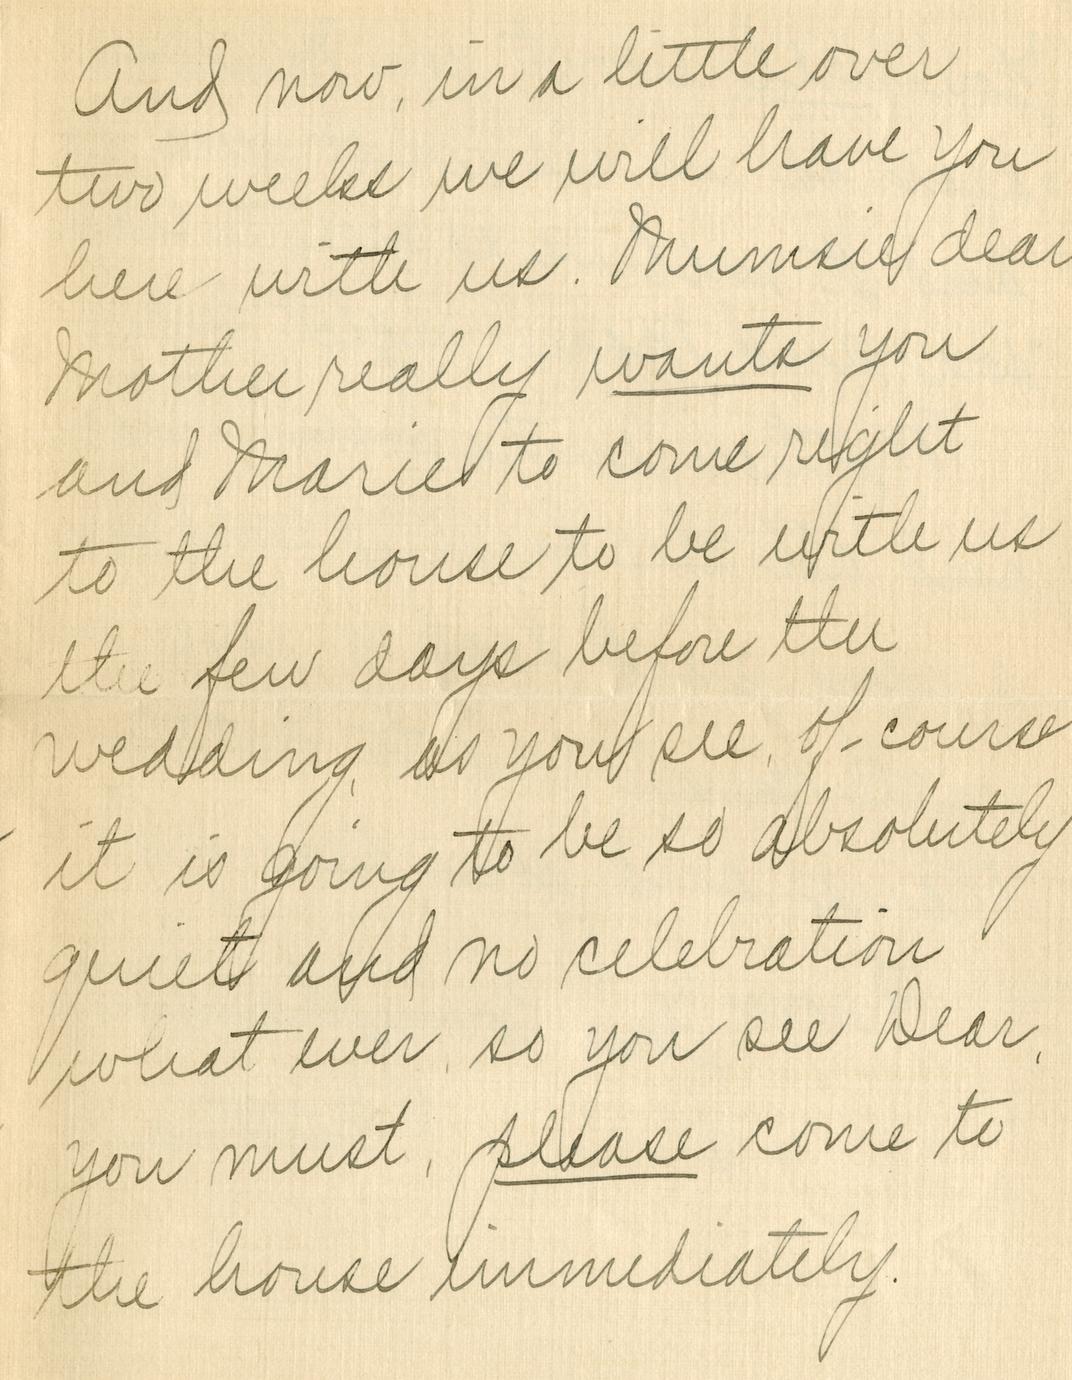 And now, in a little over
two weeks we will have you
here with us. Mumsie dear
Mother really wants you
and Marie to come right
to the house to be with us
the few days before the
wedding, as you see, of-course
it is going to be so absolutely
quiet and no celebration
what ever, so you see Dear,
you must, please come to
the house immediately.